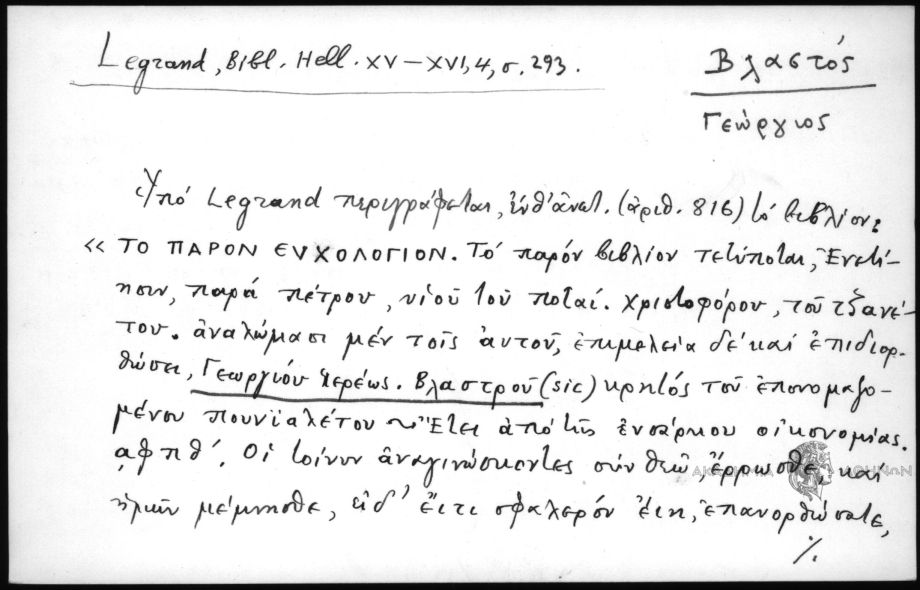 Legrand, Bibl. Hell. XV–XVI, 4, σ. 293.
Βλαστός
Γεώργιος
Ὑπό Legrand περιγράφεται, ἐνθ' ἀνωτ. (ἀριθ. 816) τό βιβλίον:
« ΤΟ ΠΑΡΟΝ ΕΥΧΟΛΟΓΙΟΝ. Τό παρόν βιβλίον τετύποται, Ἐνετί-
ησιν, παρά πέτρου, υἱοῦ τοῦ ποταί. χριστοφόρου, τοῦ τζανέ-
του. ἀναλώμασι μέν τοῖς ἀυτοῦ, ἐπιμελεία δέ καί ἐπιδιορ-
θώσει, Γεωργίου ἱερέως. Βλαστροῦ (sic) κρητός τοῦ ἐπονομαζο-
μένου πουνϊαλέτου ~ Ἔτει ἀπό τῆς ἐνσάρκου οἰκονομίας.
αφπθ΄. Οἱ τοίνυν ἀναγινώσκοντες σύν θεῶ, ἔρρωσθε, καί
ἡμῶν μέμνησθε, εἰ δ' ἔιτι σφαλερόν ἔιη, ἐπανορθώσατε,
ΑΚΑΔΗΜΙΑ ΑΘΗΝΩΝ
./.